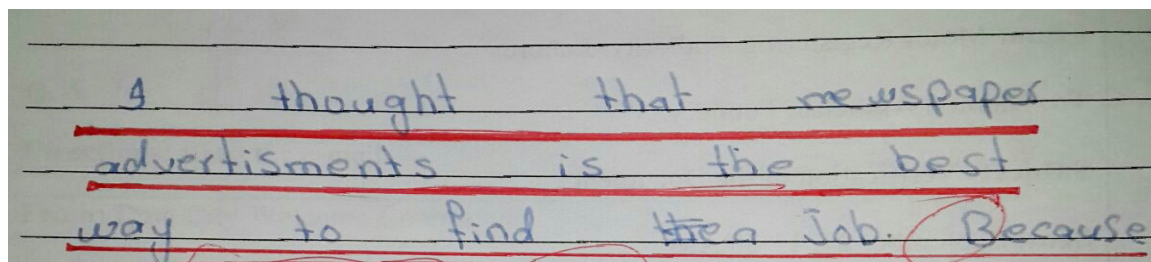 I thought that newspaper
advertisments is the best
way to find a Job. Because